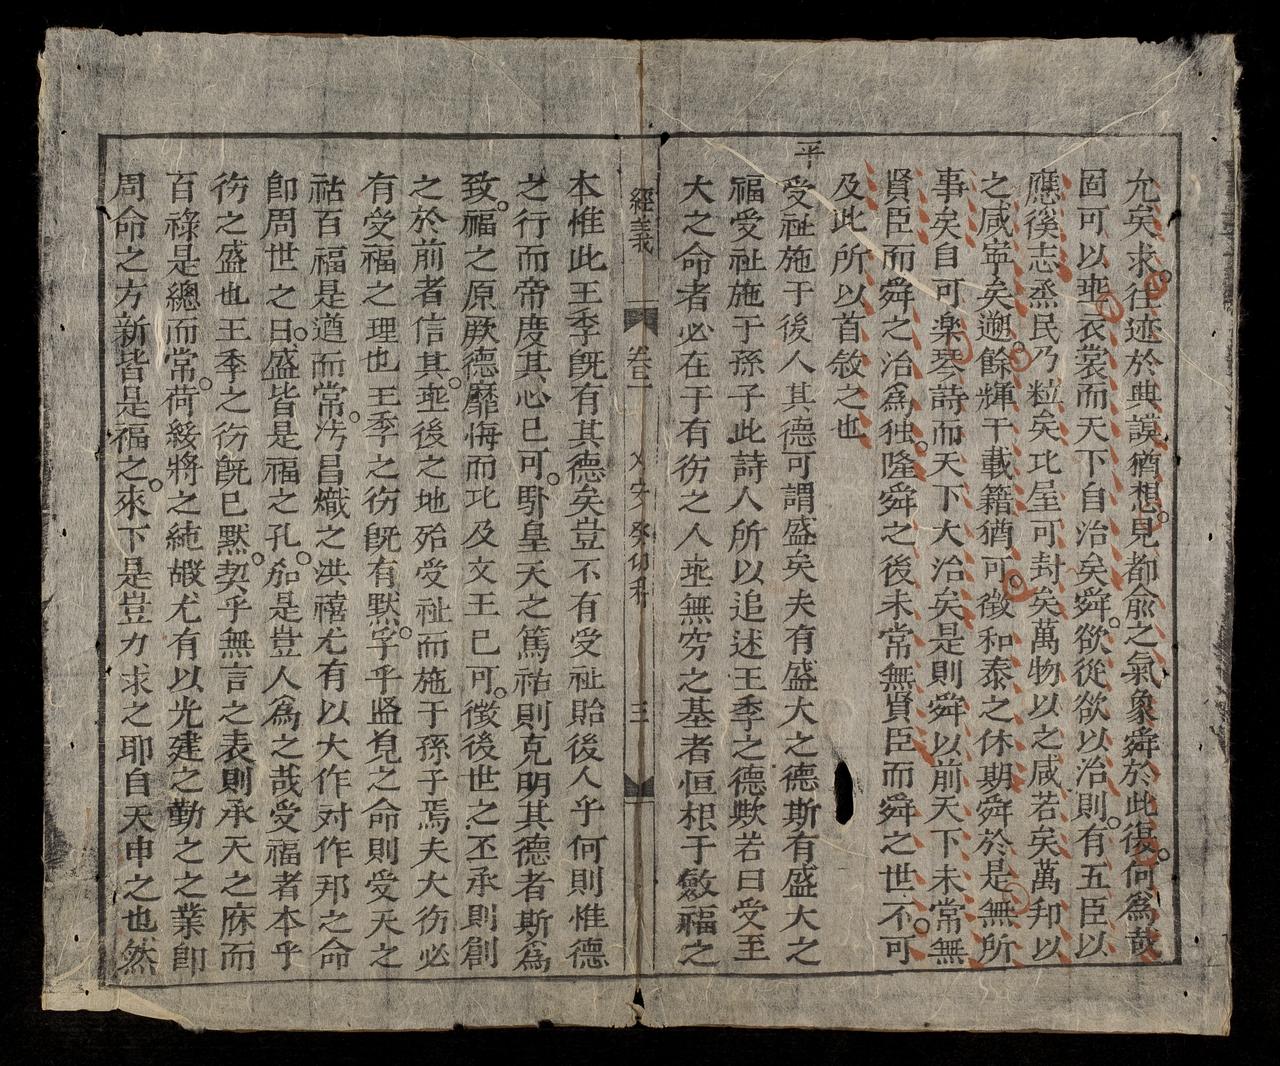 允矣求往迹於典謨猶想見都俞之氣象舜於此復何為哉
固可以垂衣裳而天下自治矣舜欲從欲以治則有五臣以
應徯志烝民乃粒矣比屋可封矣萬物以之咸若矣萬邦以
之咸寧矣遡餘輝于載籍猶可徵和泰之休期舜於是無所
事矣自可樂琴詩而天下大治矣是則舜以前天下未常無
賢臣而舜之治為独隆舜之後未常無賢臣而舜之世不可
及此所以首敘之也
平
受祉施于後人其德可謂盛矣夫有盛大之德斯有盛大之
福受祉施于孫子此詩人所以追述王季之德歟若曰受至
大之命者必在于有彷之人垂無穷之基者恒根于斂福之
經義 卷二 乂安癸卯科 三
本惟此王季既有其德矣豈不有受祉貽後人乎何則惟德
之行而帝度其心已可馴皇天之篤祐則克明其德者斯為
致福之原厥德靡悔而比及文王已可徵後世之丕承則創
之於前者信其垂後之地殆受祉而施于孫子焉夫大彷必
有受福之理也王季之彷既有默孚乎監覌之命則受天之
祜百福是遒而常汚昌熾之洪禧尤有以大作对作邦之命
卽周世之日盛皆是福之孔加是豈人為之哉受福者本乎
彷之盛也王季之彷既已默契乎無言之表則承天之庥而
百祿是總而常荷綏將之純嘏尤有以光建之勤之之業卽
周命之方新皆是福之來下是豈力求之耶自天申之也然